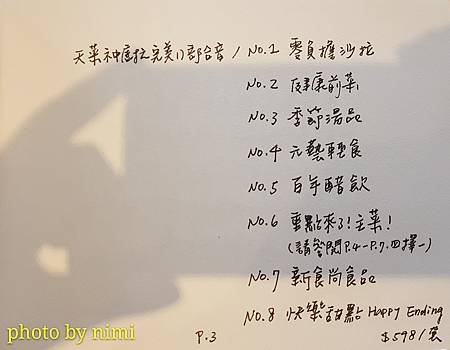 天菜神盧拉完美八部合音 / No.1 零負擔沙拉
No.2 健康前菜
No.3 季節湯品
No.4 元藝輕食
No.5 百年醋飲
No.6 重點來了!主菜!
(請參閱P.4-P.7.四擇一)
No.7 新食尚食品
No.8 快樂甜點 Happy Ending
$598/套
P.3
photo by nimi